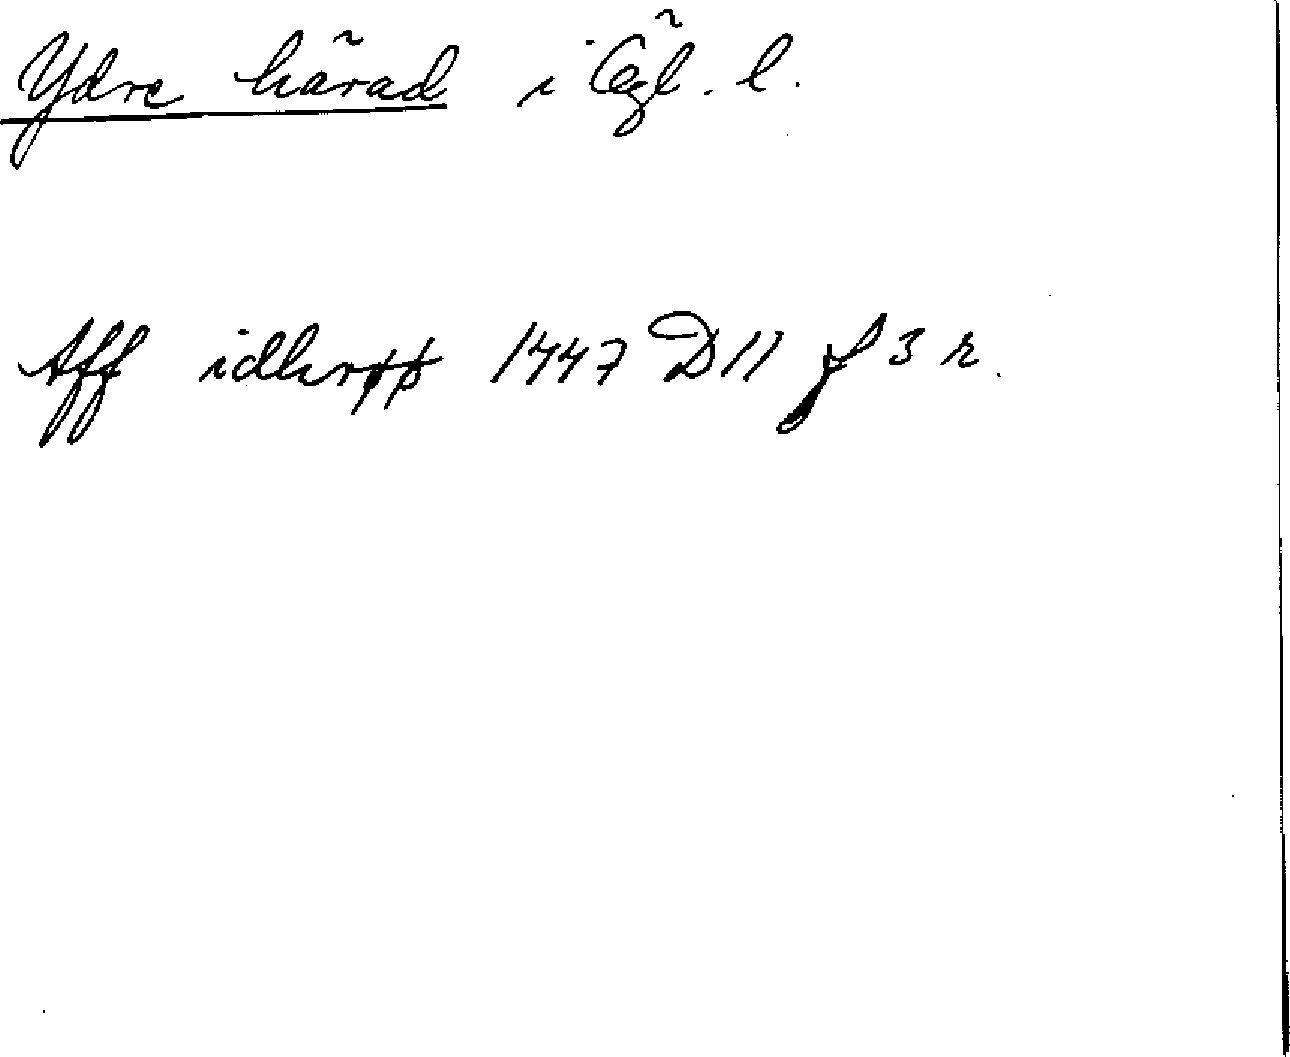 Ydre härad i Ögl. l.
Aff idhrøø 1447 D11 f 3 r.